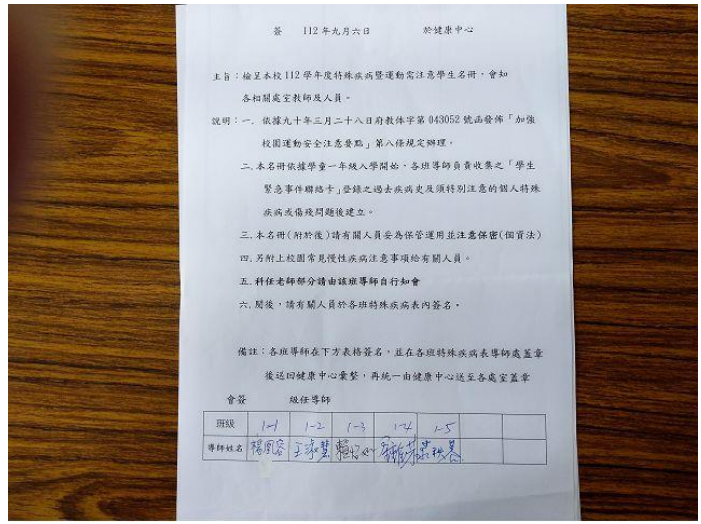 簽 112年九月六日 於健康中心
主旨：檢呈本校112學年度特殊疾病暨運動需注意學生名冊，會知
各相關處室教師及人員。
說明：一、依據九十年三月二十八日府教体字第043052號函發佈「加強
校園運動安全注意要點」第八條規定辦理。
二、本名冊依據學童一年級入學開始，各班導師負責收集之「學生
緊急事件聯絡卡」登錄之過去疾病史及須特別注意的個人特殊
疾病或傷殘問題後建立。
三、本名冊(附於後)請有關人員妥為保管運用並注意保密(個資法)
四、另附上校園常見慢性疾病注意事項給有關人員。
五、科任老師部分請由該班導師自行知會
六、閱後，請有關人員於各班特殊疾病表內簽名。
備註：各班導師在下方表格簽名，並在各班特殊疾病表導師處蓋章
後送回健康中心彙整，再統一由健康中心送至各處室蓋章
會簽 級任導師
班級 1-1 1-2 1-3 1-4 1-5
導師姓名 楊 王 慧